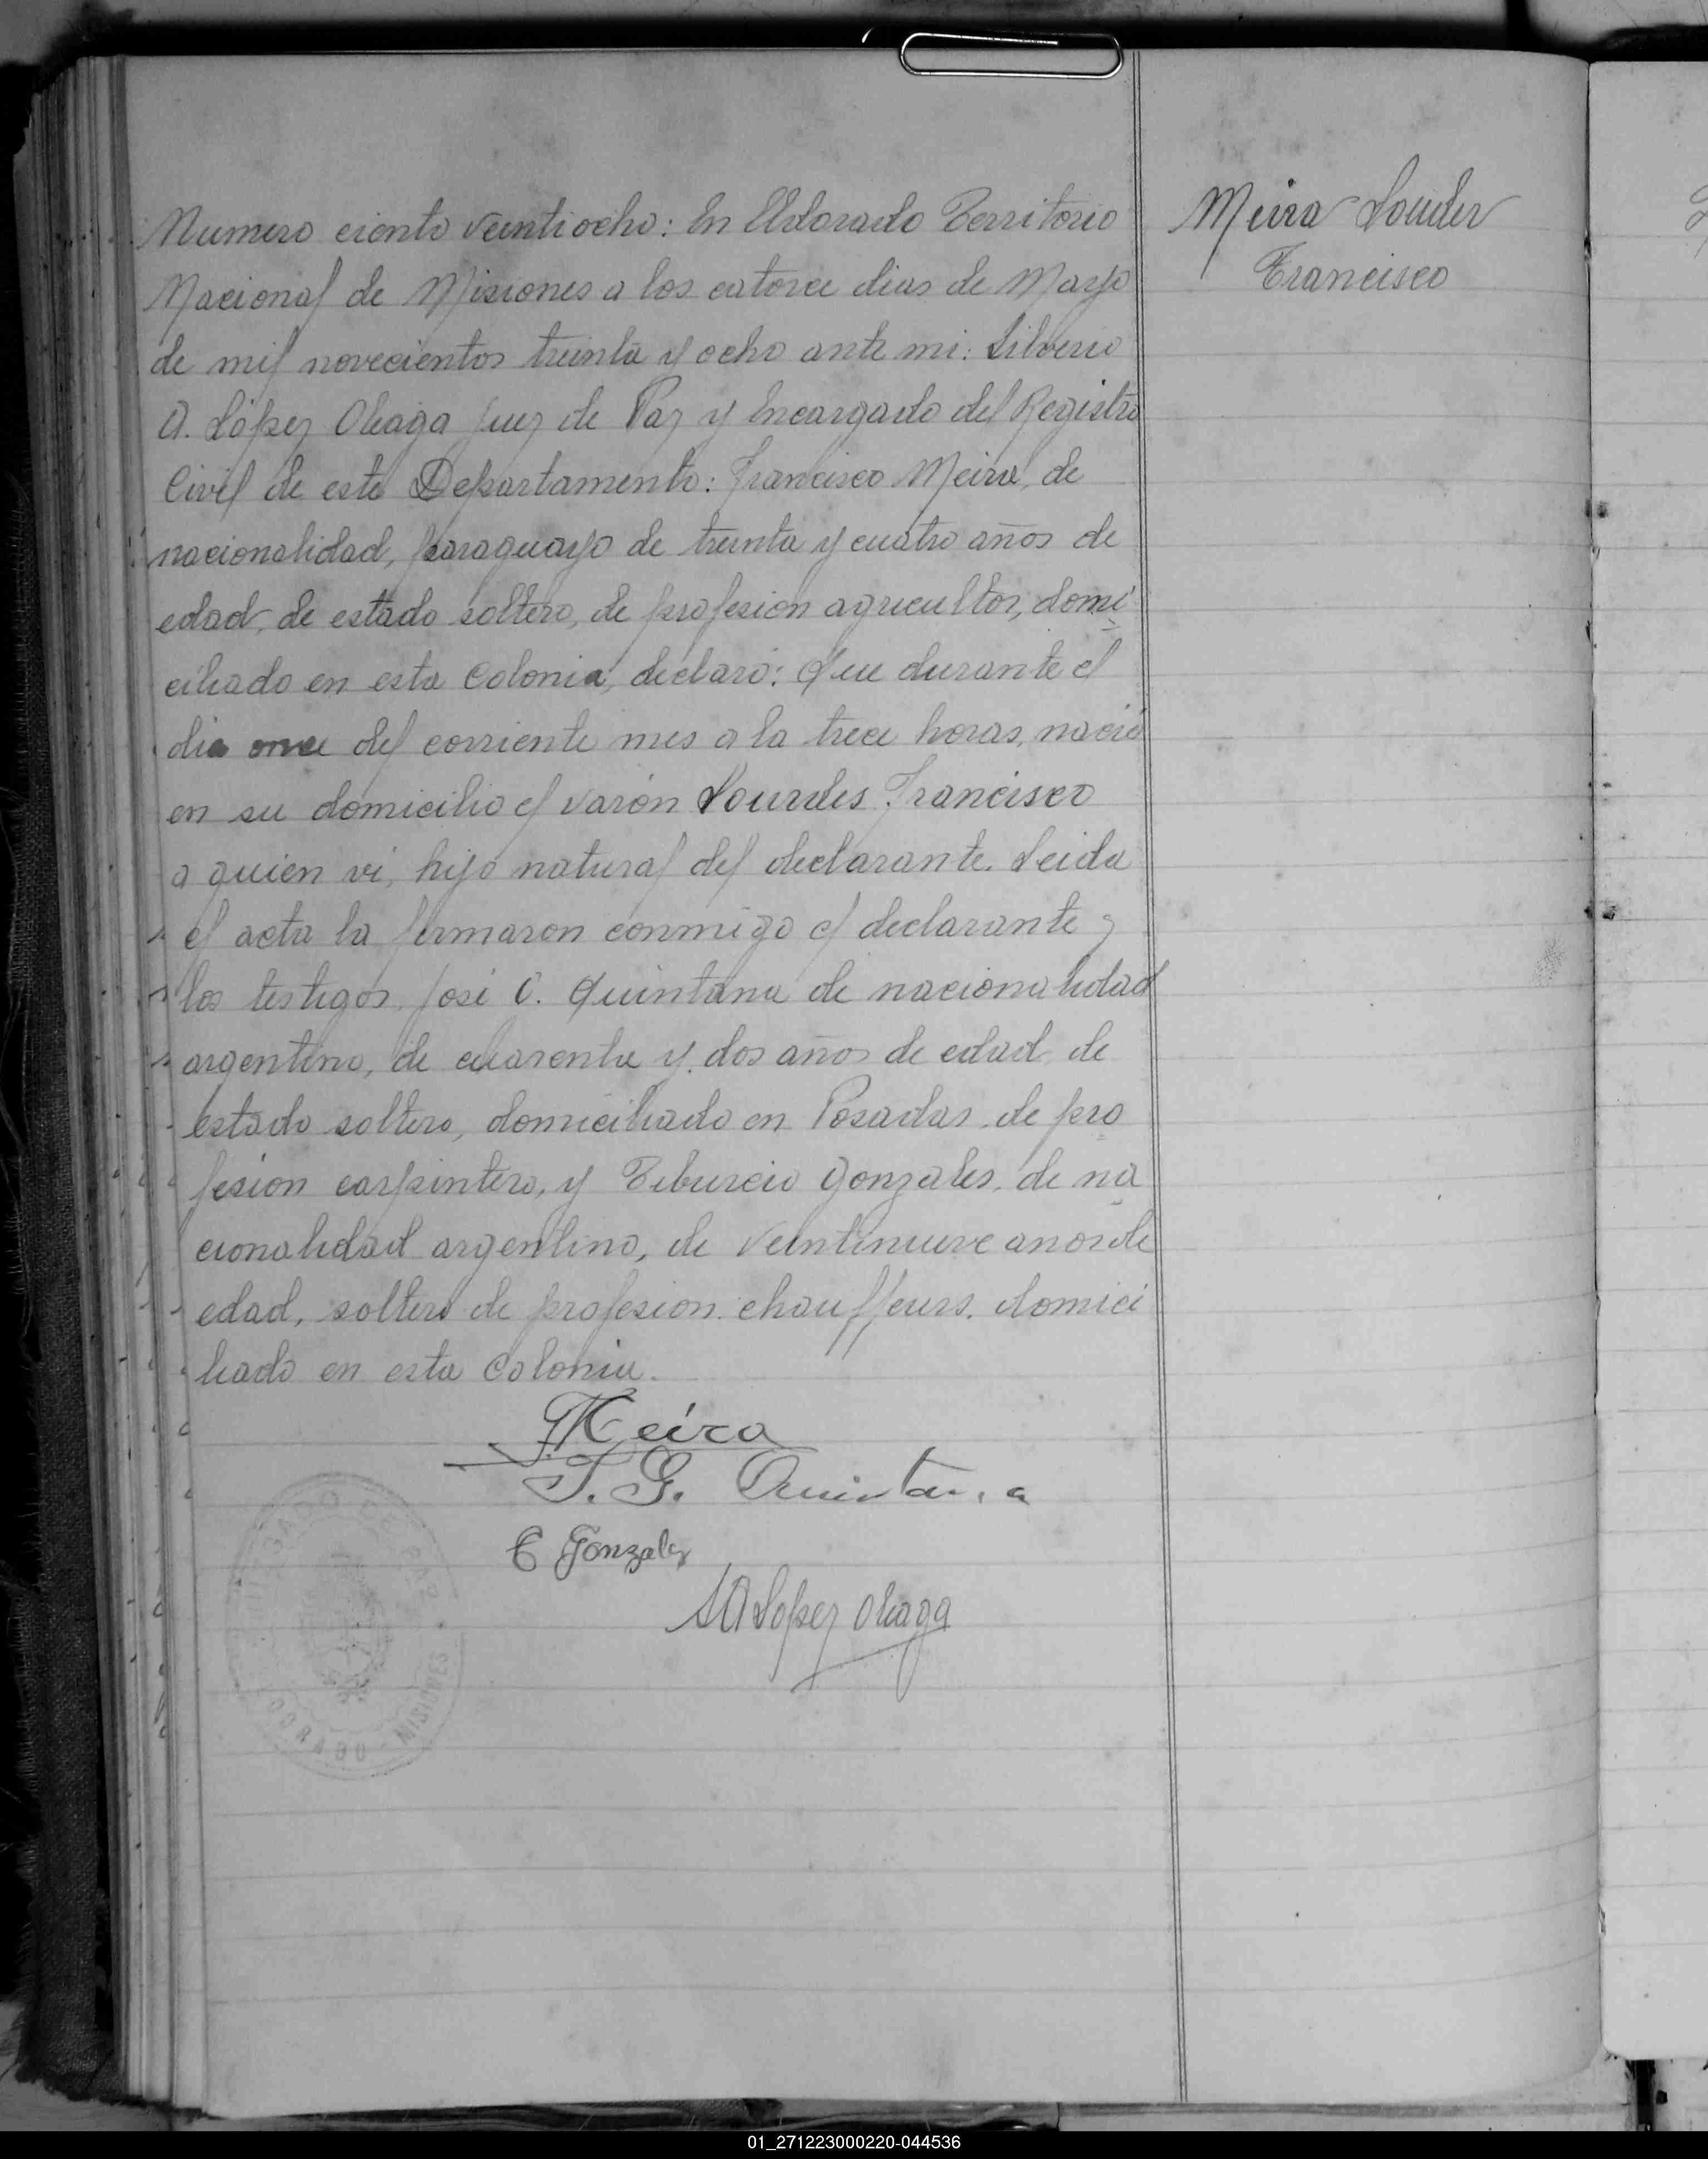 Numero ciento veintiocho: En Eldorado Territorio
Nacional de Misiones a los catorce dias de Mayo
de mil novecientos treinta y ocho ante mi: Silverio
A. López Oleaga Juez de Paz y Encargado del Registro
Civil de este Departamento: Francisco Meira, de
nacionalidad, paraguayo de treinta y cuatro años de
edad, de estado soltero, de profesion agricultor, domi
ciliado en esta Colonia, declaró: Que durante el
dia once del corriente mes a la trece horas, nació
en su domicilio el varón Lourdes Francisco
a quien vi, hijo natural del declarante. Leida
el acta la firmaron conmigo el declarante y
los testigos José C. Quintana de nacionalidad
argentino, de cuarenta y dos años de edad de
estado soltero, domiciliado en Posadas de pro
fesion carpintero, y Tiburcio Gonzales, de na
cionalidad argentino, de veintinueve anos de
edad, soltero de profesion chauffeurs. domici
liado en esta Colonia.
F. Meira
J. G. Quintana
T Gonzalez
SA López Oleaga
DORADO - MISIONES
Meira
Francisco
01_271223000220-044536